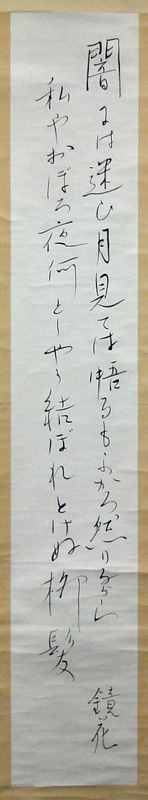 闇には迷ひ月見ては悟るもよかろ然りながら
私やおぼろ夜何としやう結ぼれとけぬ柳髪
鏡花